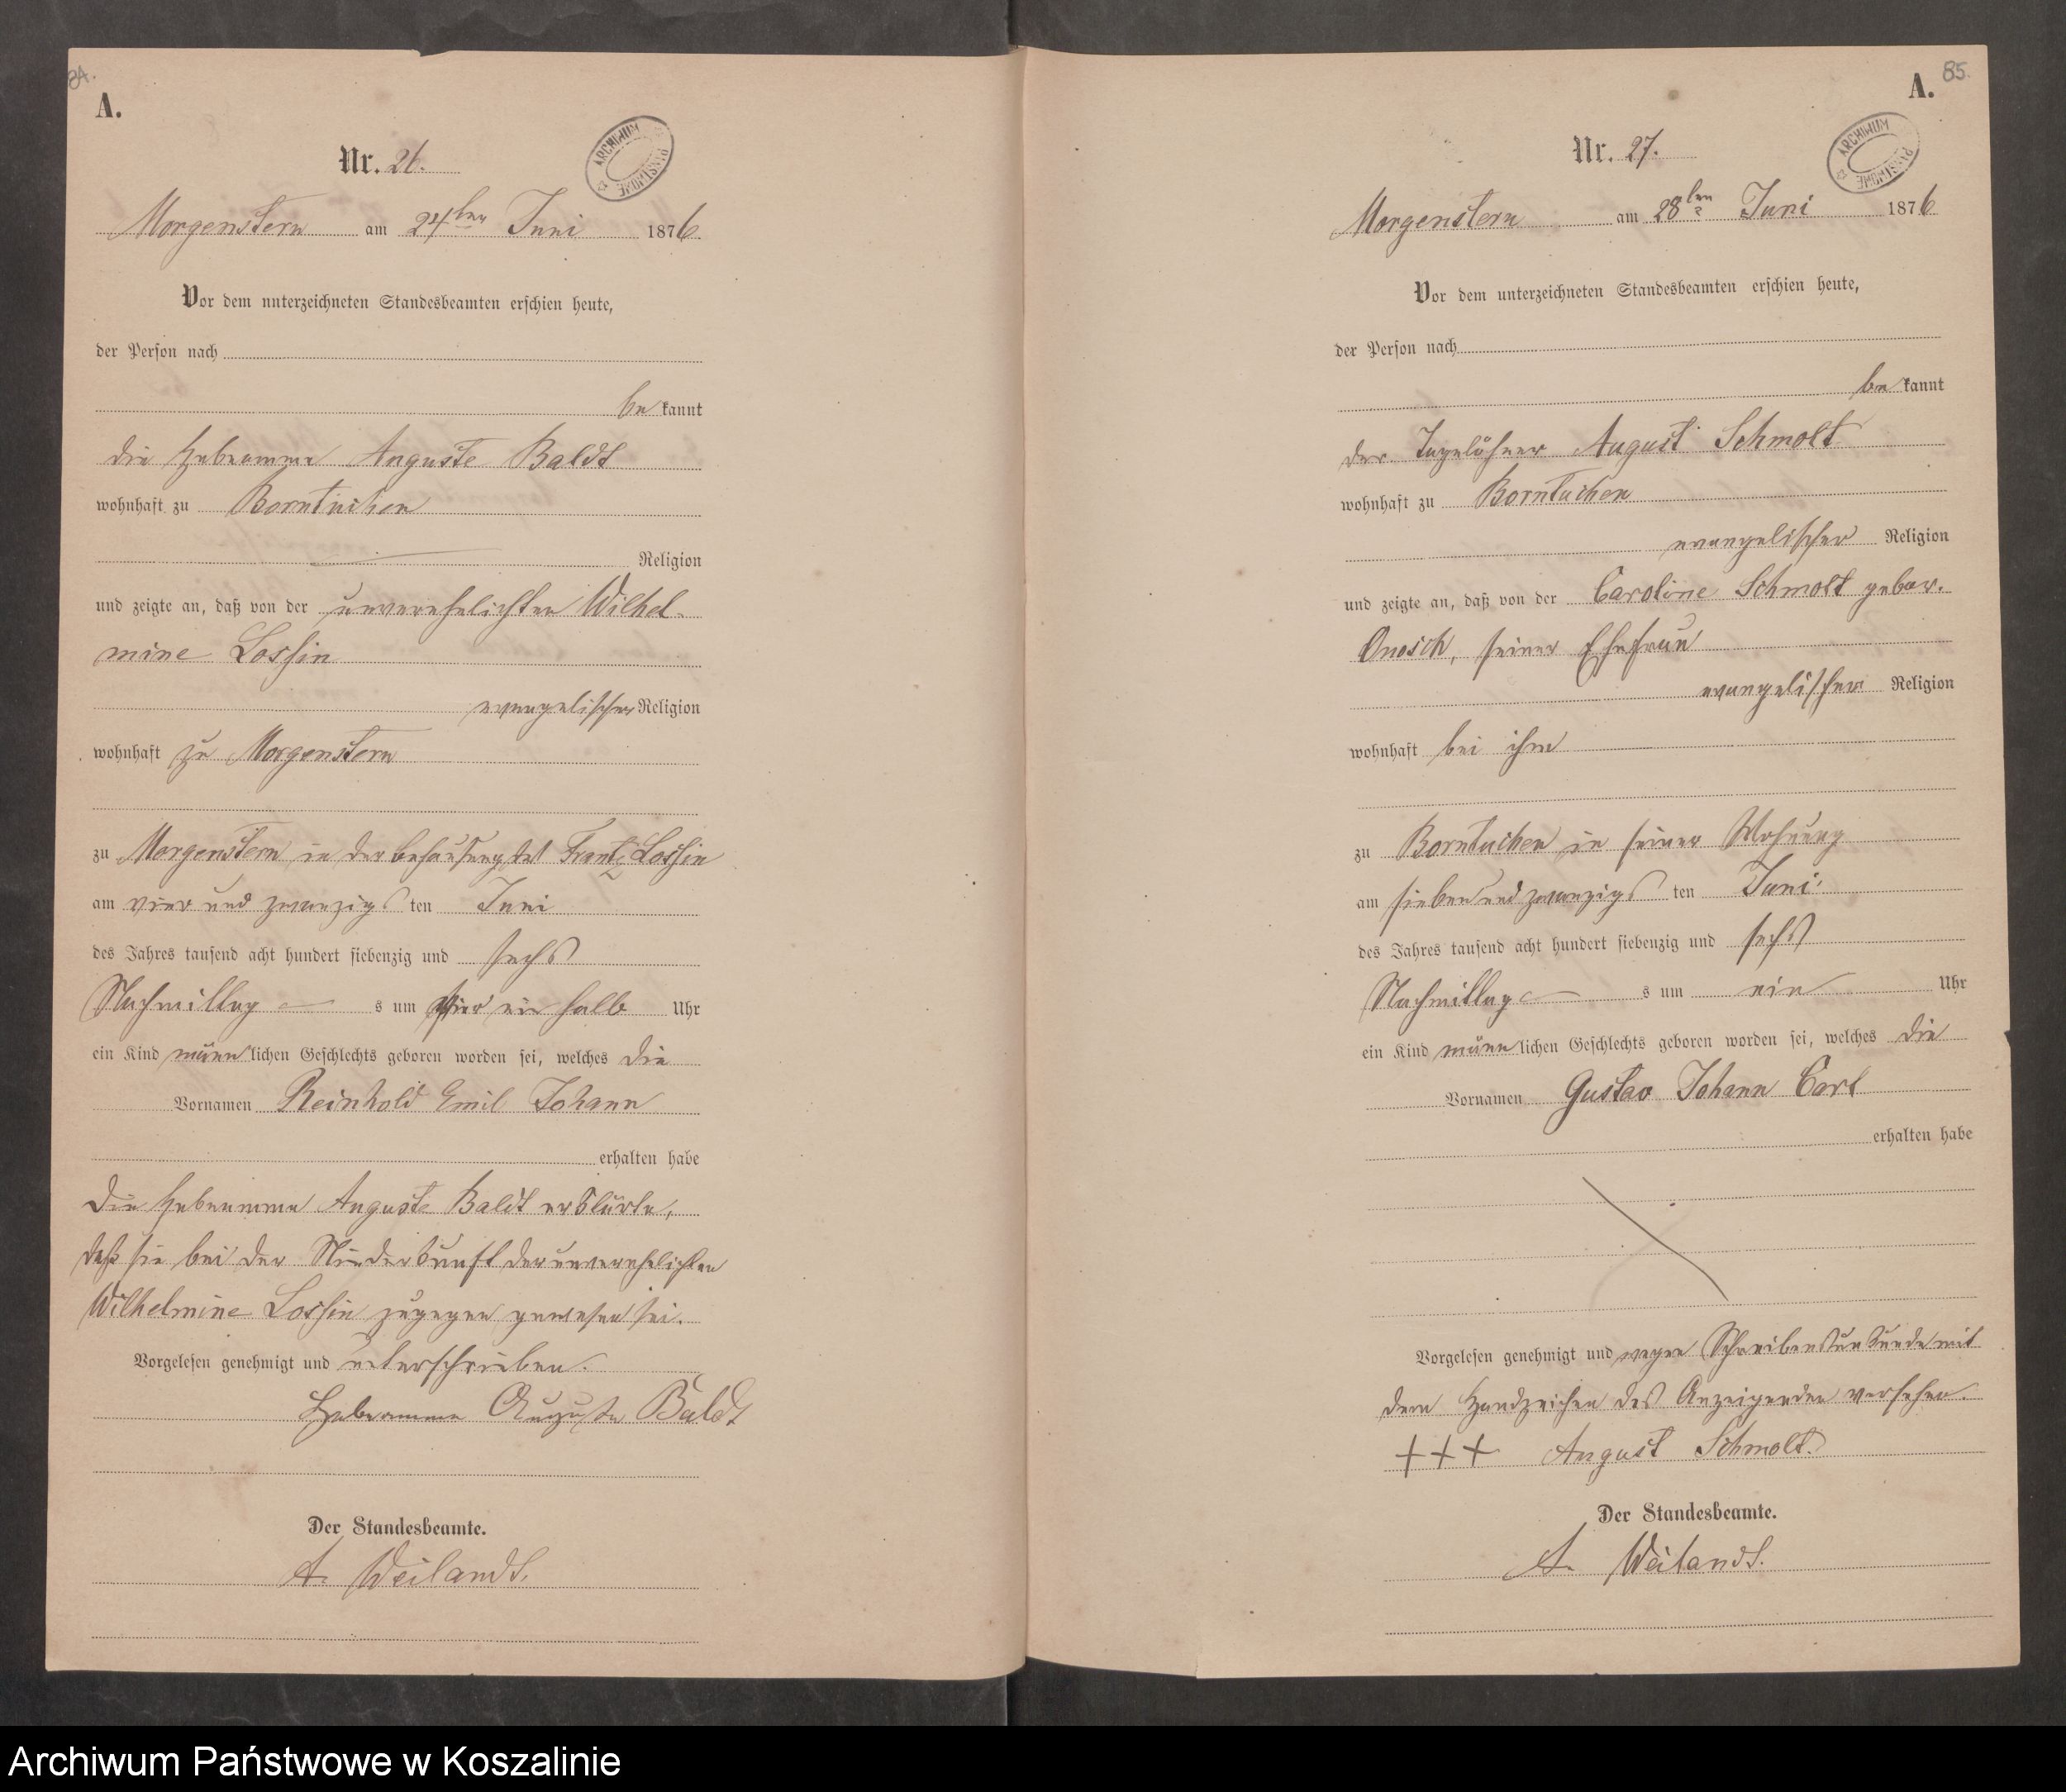 84.
A.
Nr. 26.
ARCHIWUM PAŃSTWOWE
Morgenstern am 24ten Juni 1876.
Vor dem unterzeichneten Standesbeamten erschien heute,
der Person nach
be kannt
die Hebeamme Auguste Baldt
wohnhaft zu Borntuchen
Religion
und zeigte an, daß von der unverehelichten Wilhel-
mine Lossin
evangelischer Religion
wohnhaft zu Morgenstern
zu Morgenstern in der Behausung des Frantz Lossin
am vier und zwanzigs ten Juni
des Jahres tausend acht hundert siebenzig und sechs
Nachmittag s um vier ein halb Uhr
ein Kind männ lichen Geschlechts geboren worden sei, welches die
Vornamen Reinhold Emil Johann
erhalten habe
Die Hebeamme Auguste Baldt erklärte,
daß sie bei der Niederkunft der unverehelichten
Wilhelmine Lossin zugegen gewesen sei.
Vorgelesen genehmigt und unterschrieben.
Hebeamme Auguste Baldt
Der Standesbeamte.
A. Weilandt.
85.
A.
Nr. 27.
ARCHIWUM PAŃSTWOWE
Morgenstern am 28ten Juni 1876
Vor dem unterzeichneten Standesbeamten erschien heute,
der Person nach
be kannt
der Tagelöhner August Schmolt
wohnhaft zu Borntuchen
evangelischer Religion
und zeigte an, daß von der Caroline Schmolt gebor.
Onosch, seiner Ehefrau
evangelischer Religion
wohnhaft bei ihm
zu Borntuchen in seiner Wohnung
am sieben und zwanzigs ten Juni
des Jahres tausend acht hundert siebenzig und sechs
Nachmittag s um ein Uhr
ein Kind männ lichen Geschlechts geboren worden sei, welches die
Vornamen Gustav Johann Carl
erhalten habe
Vorgelesen genehmigt und wegen Schreibensunkunde mit
dem Handzeichen des Anzeigenden versehen.
+++ August Schmolt.
Der Standesbeamte.
A. Weilandt.
Archiwum Państwowe w Koszalinie